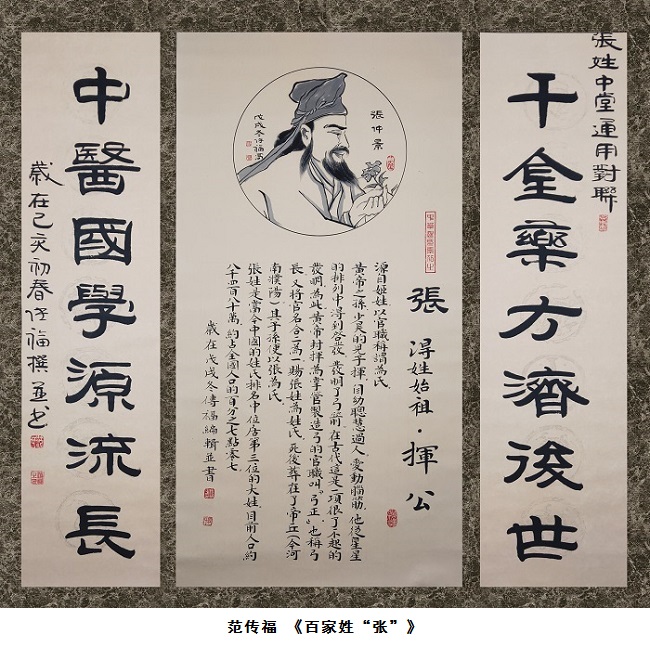 張姓中堂通用對聯
千金藥方濟後世
張仲景
戊戌冬仔福寫
張 得姓始祖·揮公
源自姬姓以官職稱謂為氏
黃帝之孫少昊的兒子揮，自幼聰慧過人，愛動腦筋，他從星星
的排列中得到啓發，發明了弓箭，在古代這是一項很了不起的
發明為此黃帝封揮為專管製造弓的官職叫“弓正”也稱弓
長又將官名合二為一賜張姓為姓氏死後葬在了帝丘（今河
南濮陽）其子孫便以張為氏。
張姓是當今中國的姓氏排名中位居第三位的大姓目前人口約
八千四百八十萬，約占全國人口的百分之七點零七
歲在戊戌冬傳福編輯並書
中醫國學源流長
歲在己亥初春仔福撰並书
范传福 《百家姓“张”》